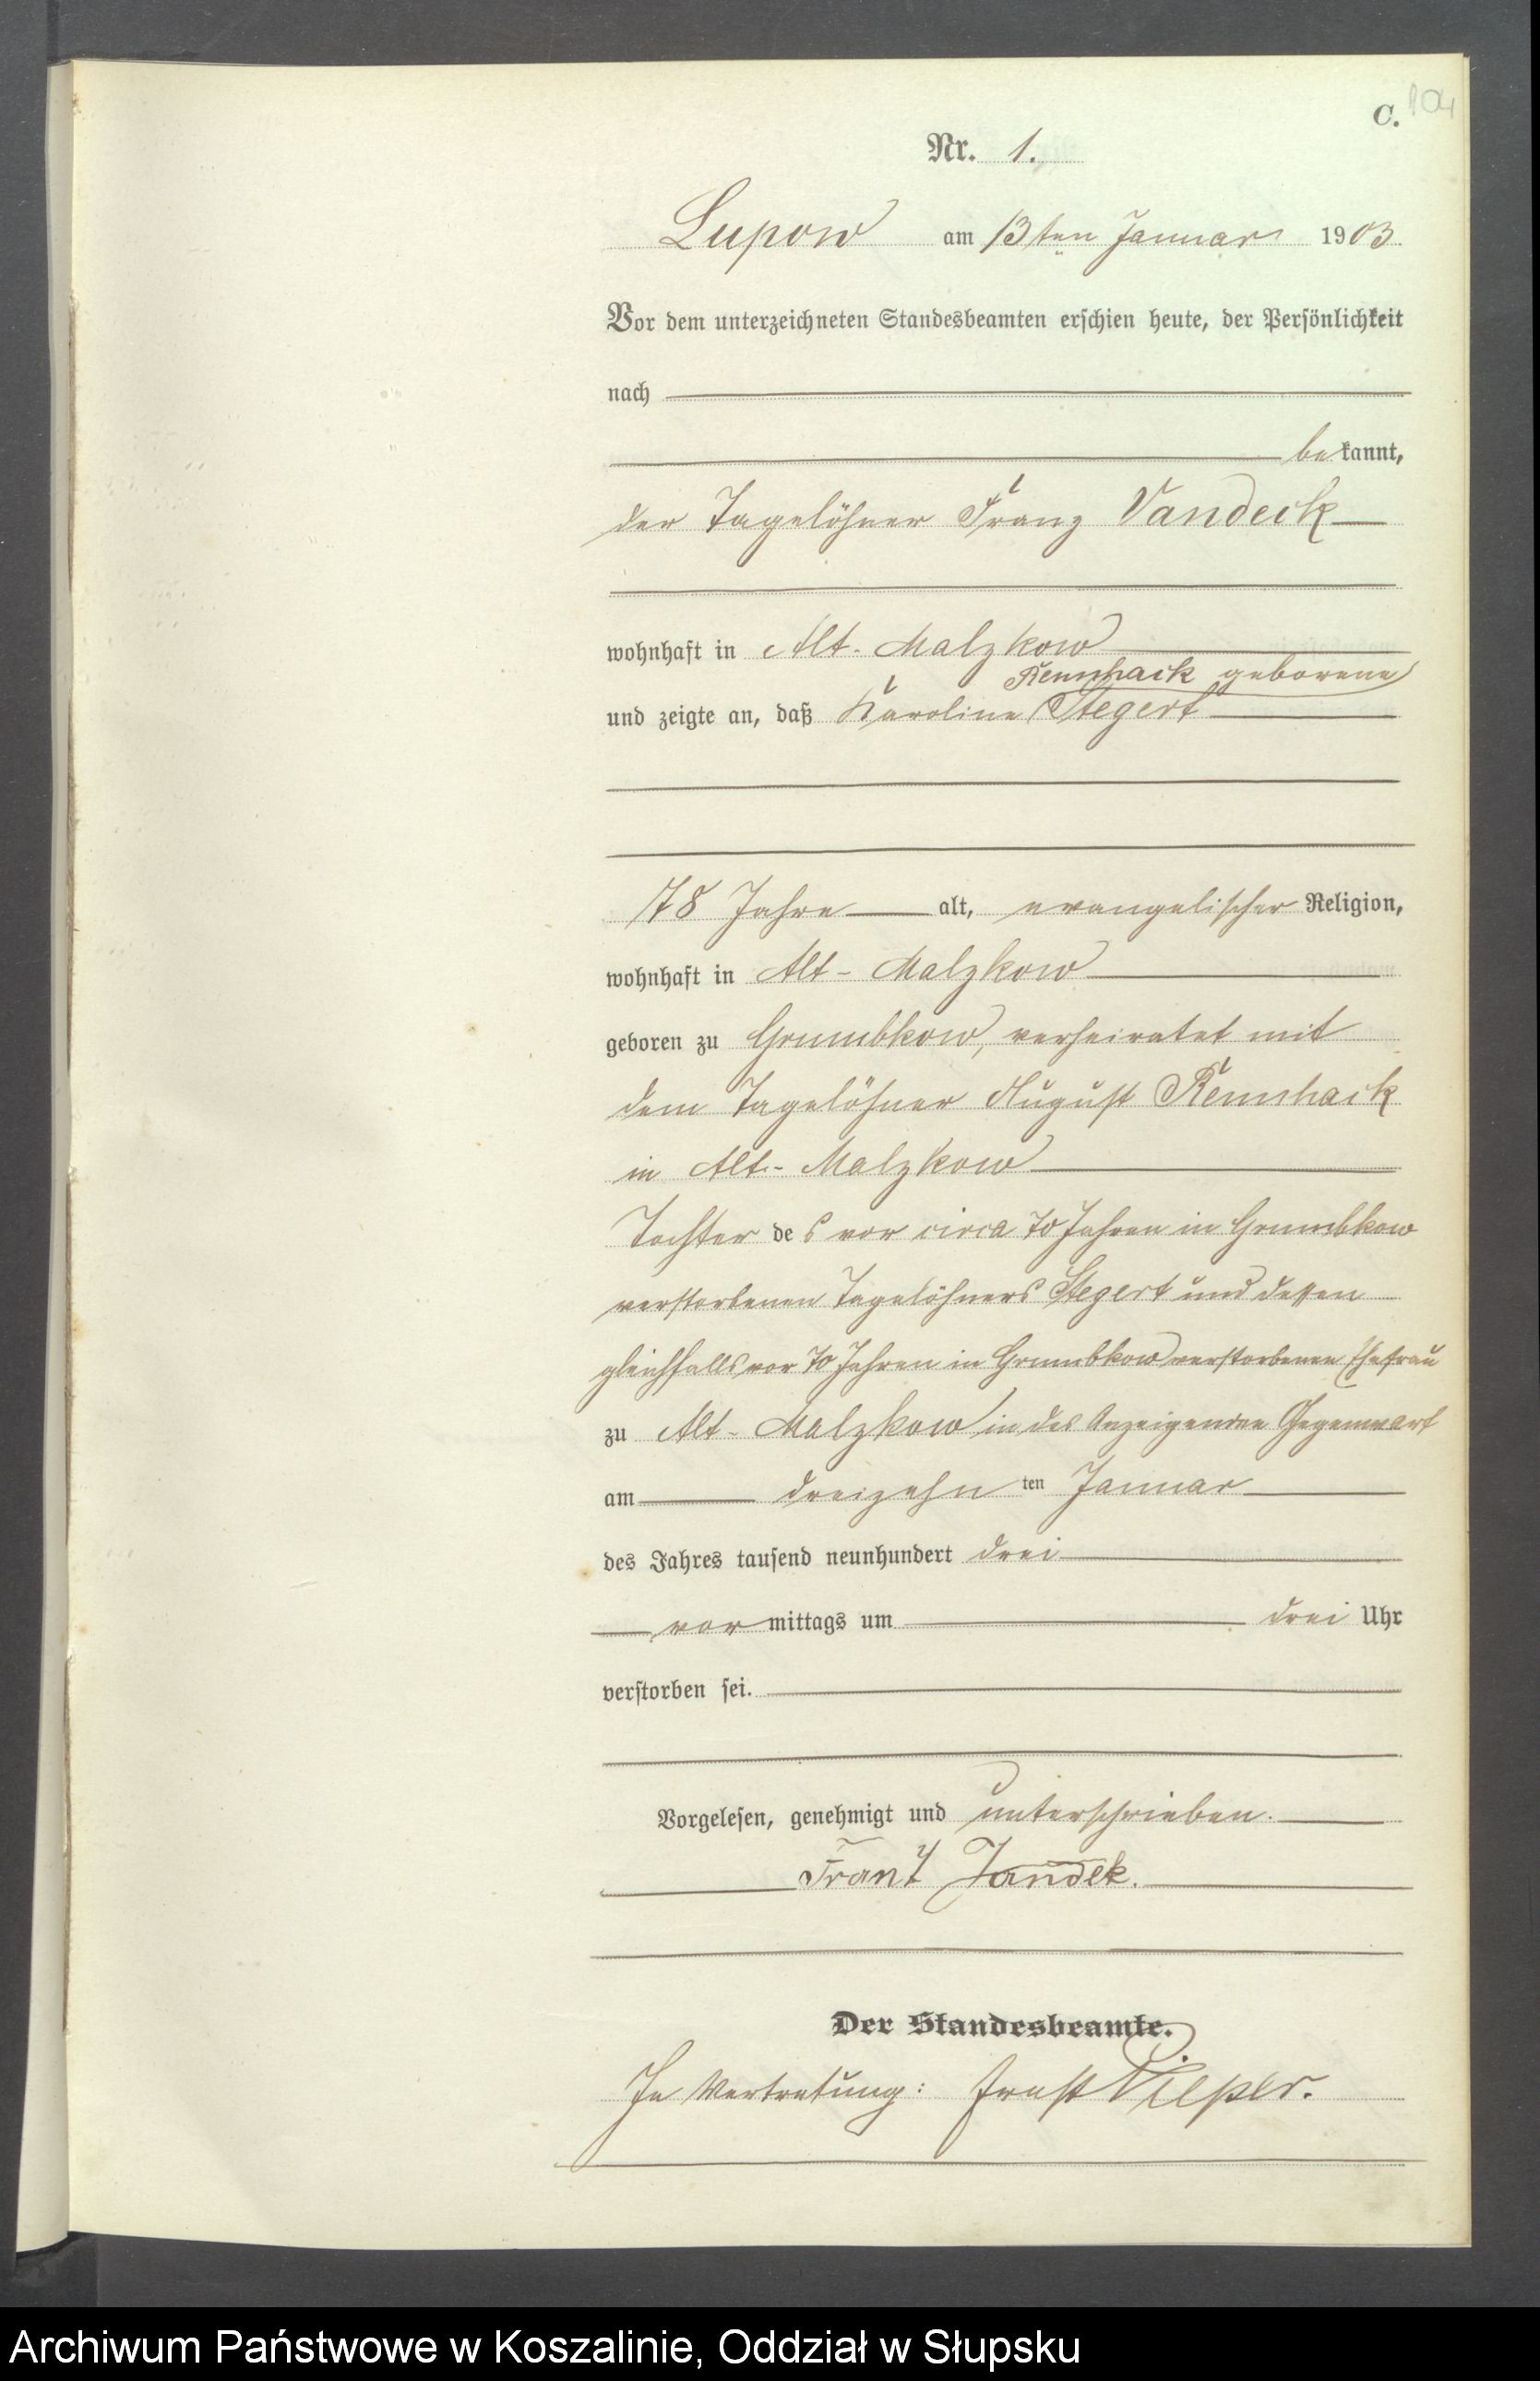 C. 104
Nr. 1.
Lupow am 13ten Januar 1903
Vor dem unterzeichneten Standesbeamten erschien heute, der Persönlichkeit
nach
bekannt,
der Tagelöhner Franz Vandeck
wohnhaft in Alt-Malzkow
Rennhack geborene
und zeigte an, daß Karoline Stegert
78 Jahre alt, evangelischer Religion,
wohnhaft in Alt-Malzkow
geboren zu Grumbkow, verheiratet mit
dem Tagelöhner August Rennhack
in Alt-Malzkow
Tochter des vor circa 70 Jahren in Grumbkow
verstorbenen Tagelöhners Stegert und dessen
gleichfalls vor 70 Jahren in Grumbkow verstorbenen Ehefrau
zu Alt-Malzkow in des Anzeigenden Gegenwart
am dreizehnten Januar
des Jahres tausend neunhundert drei
vormittags um drei Uhr
verstorben sei.
Vorgelesen, genehmigt und unterschrieben.
Franz Vandek.
Der Standesbeamte.
In Vertretung: Ernst Pieper.
Archiwum Państwowe w Koszalinie, Oddział w Słupsku